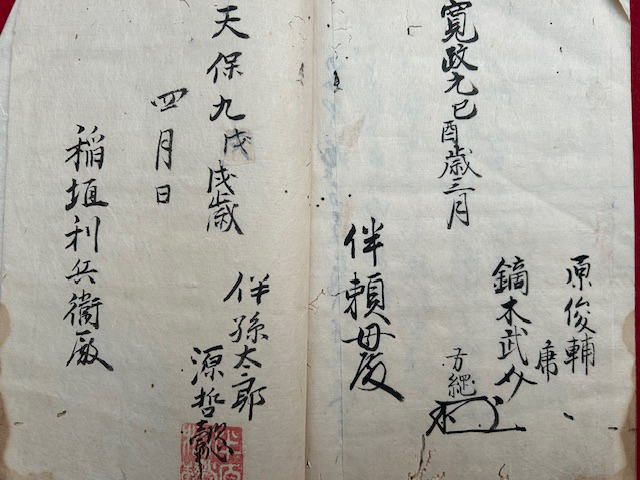 原俊輔
庸
鏑木武
方縄
寛政元己酉歳三月
伴頼母殿
伴孫太郎
源哲
天保九戊戌歳
四月日
稲垣利兵衛殿